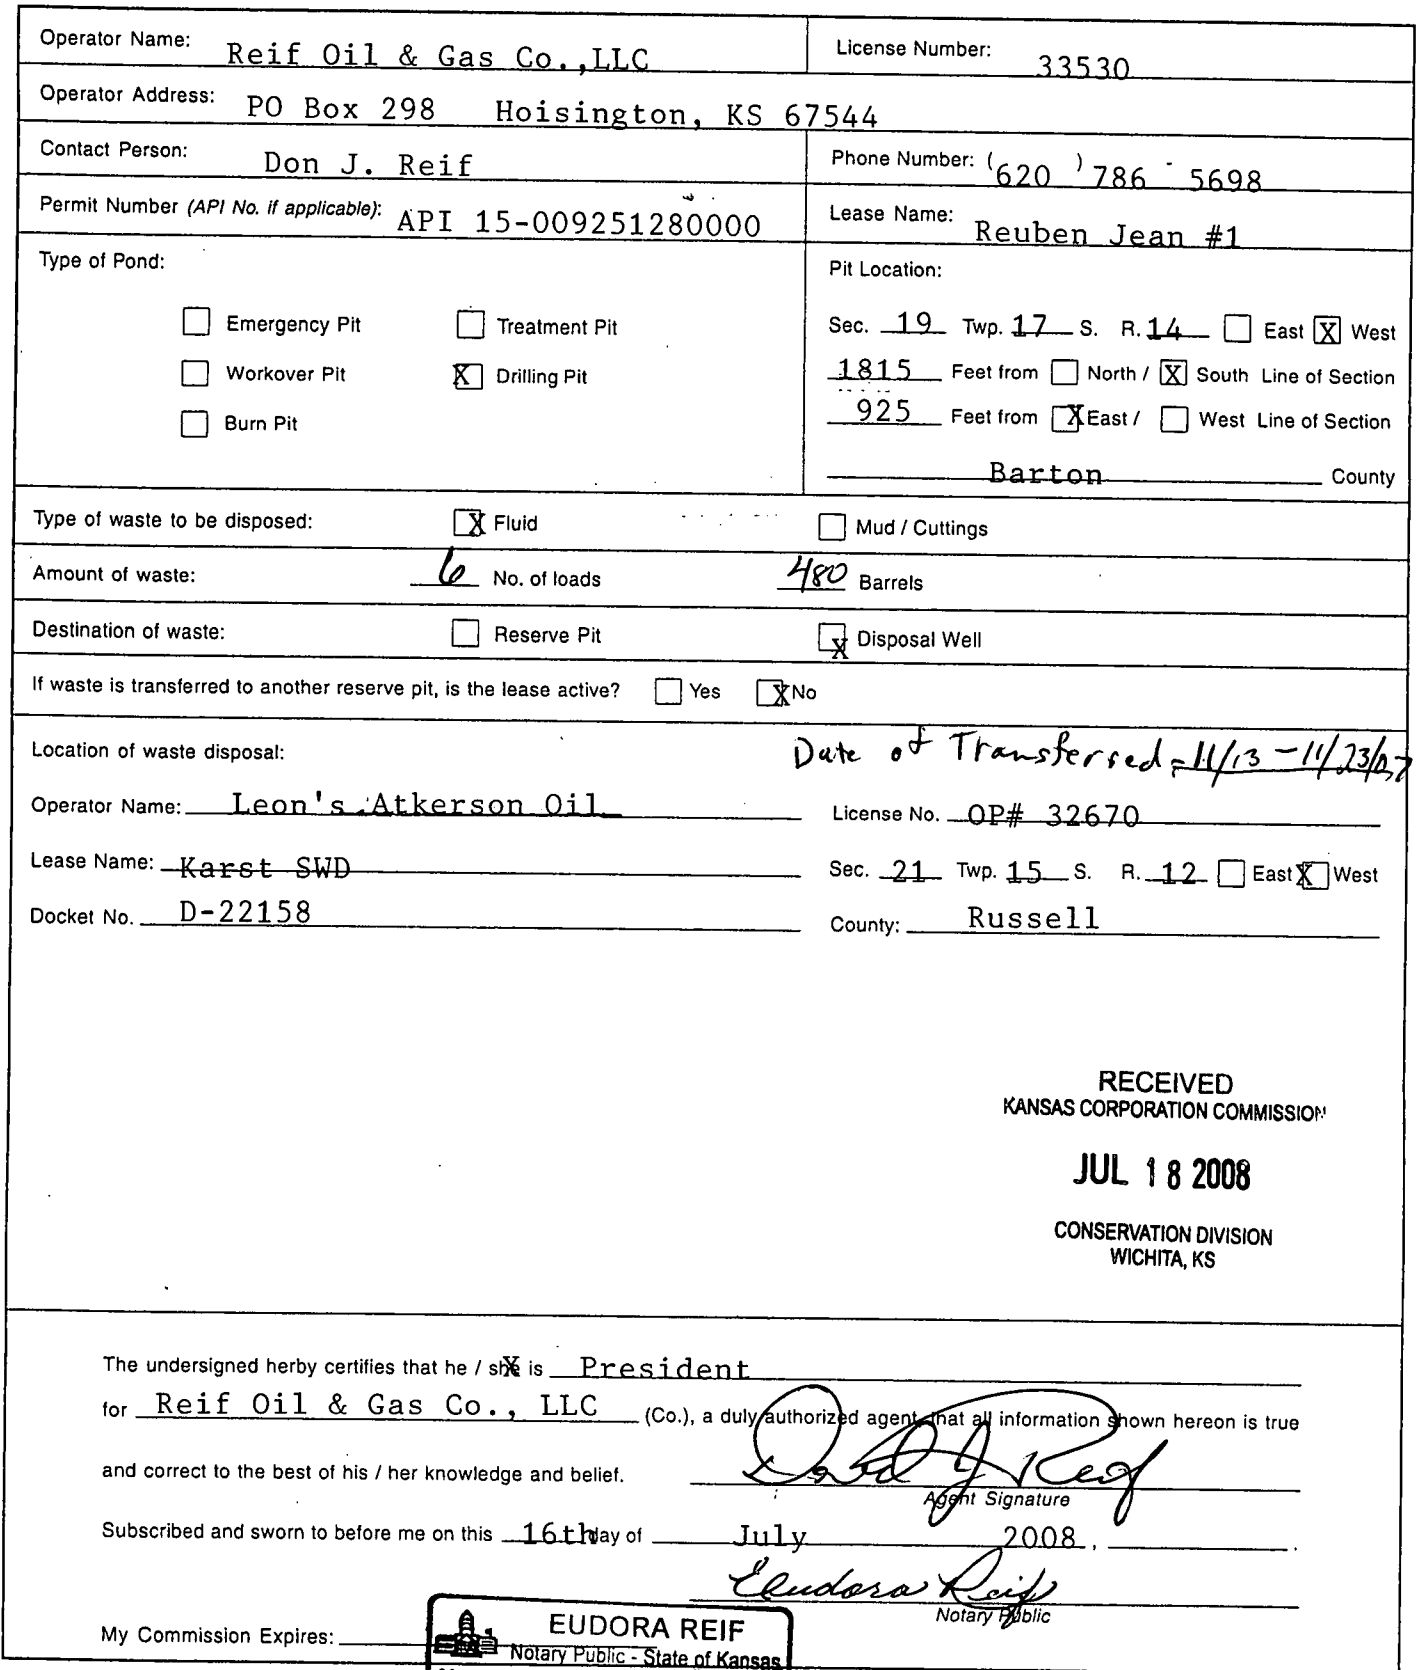 Operator Name: Reif Oil & Gas Co.,LLC License Number: 33530
Operator Address: PO Box 298 Hoisington, KS 67544
Contact Person: Don J. Reif Phone Number: (620) 786 - 5698
Permit Number (API No. if applicable): API 15-009251280000 Lease Name: Reuben Jean #1
Type of Pond: Pit Location:
☐ Emergency Pit ☐ Treatment Pit Sec. 19 Twp. 17 S. R. 14 ☐ East ☒ West
☐ Workover Pit ☒ Drilling Pit 1815 Feet from ☐ North / ☒ South Line of Section
☐ Burn Pit 925 Feet from ☒ East / ☐ West Line of Section
Barton County
Type of waste to be disposed: ☒ Fluid ☐ Mud / Cuttings
Amount of waste: 6 No. of loads 480 Barrels
Destination of waste: ☐ Reserve Pit ☒ Disposal Well
If waste is transferred to another reserve pit, is the lease active? ☐ Yes ☒ No
Location of waste disposal: Date of Transferred = 11/13 - 11/23/07
Operator Name: Leon's Atkerson Oil License No. OP# 32670
Lease Name: Karst SWD Sec. 21 Twp. 15 S. R. 12 ☐ East ☒ West
Docket No. D-22158 County: Russell
RECEIVED
KANSAS CORPORATION COMMISSION
JUL 18 2008
CONSERVATION DIVISION
WICHITA, KS
The undersigned herby certifies that he / she X is President
for Reif Oil & Gas Co., LLC (Co.), a duly authorized agent, that all information shown hereon is true
and correct to the best of his / her knowledge and belief. Don J Reif
Agent Signature
Subscribed and sworn to before me on this 16th day of July 2008, .
Eudora Reif
Notary Public
My Commission Expires:
EUDORA REIF
Notary Public - State of Kansas